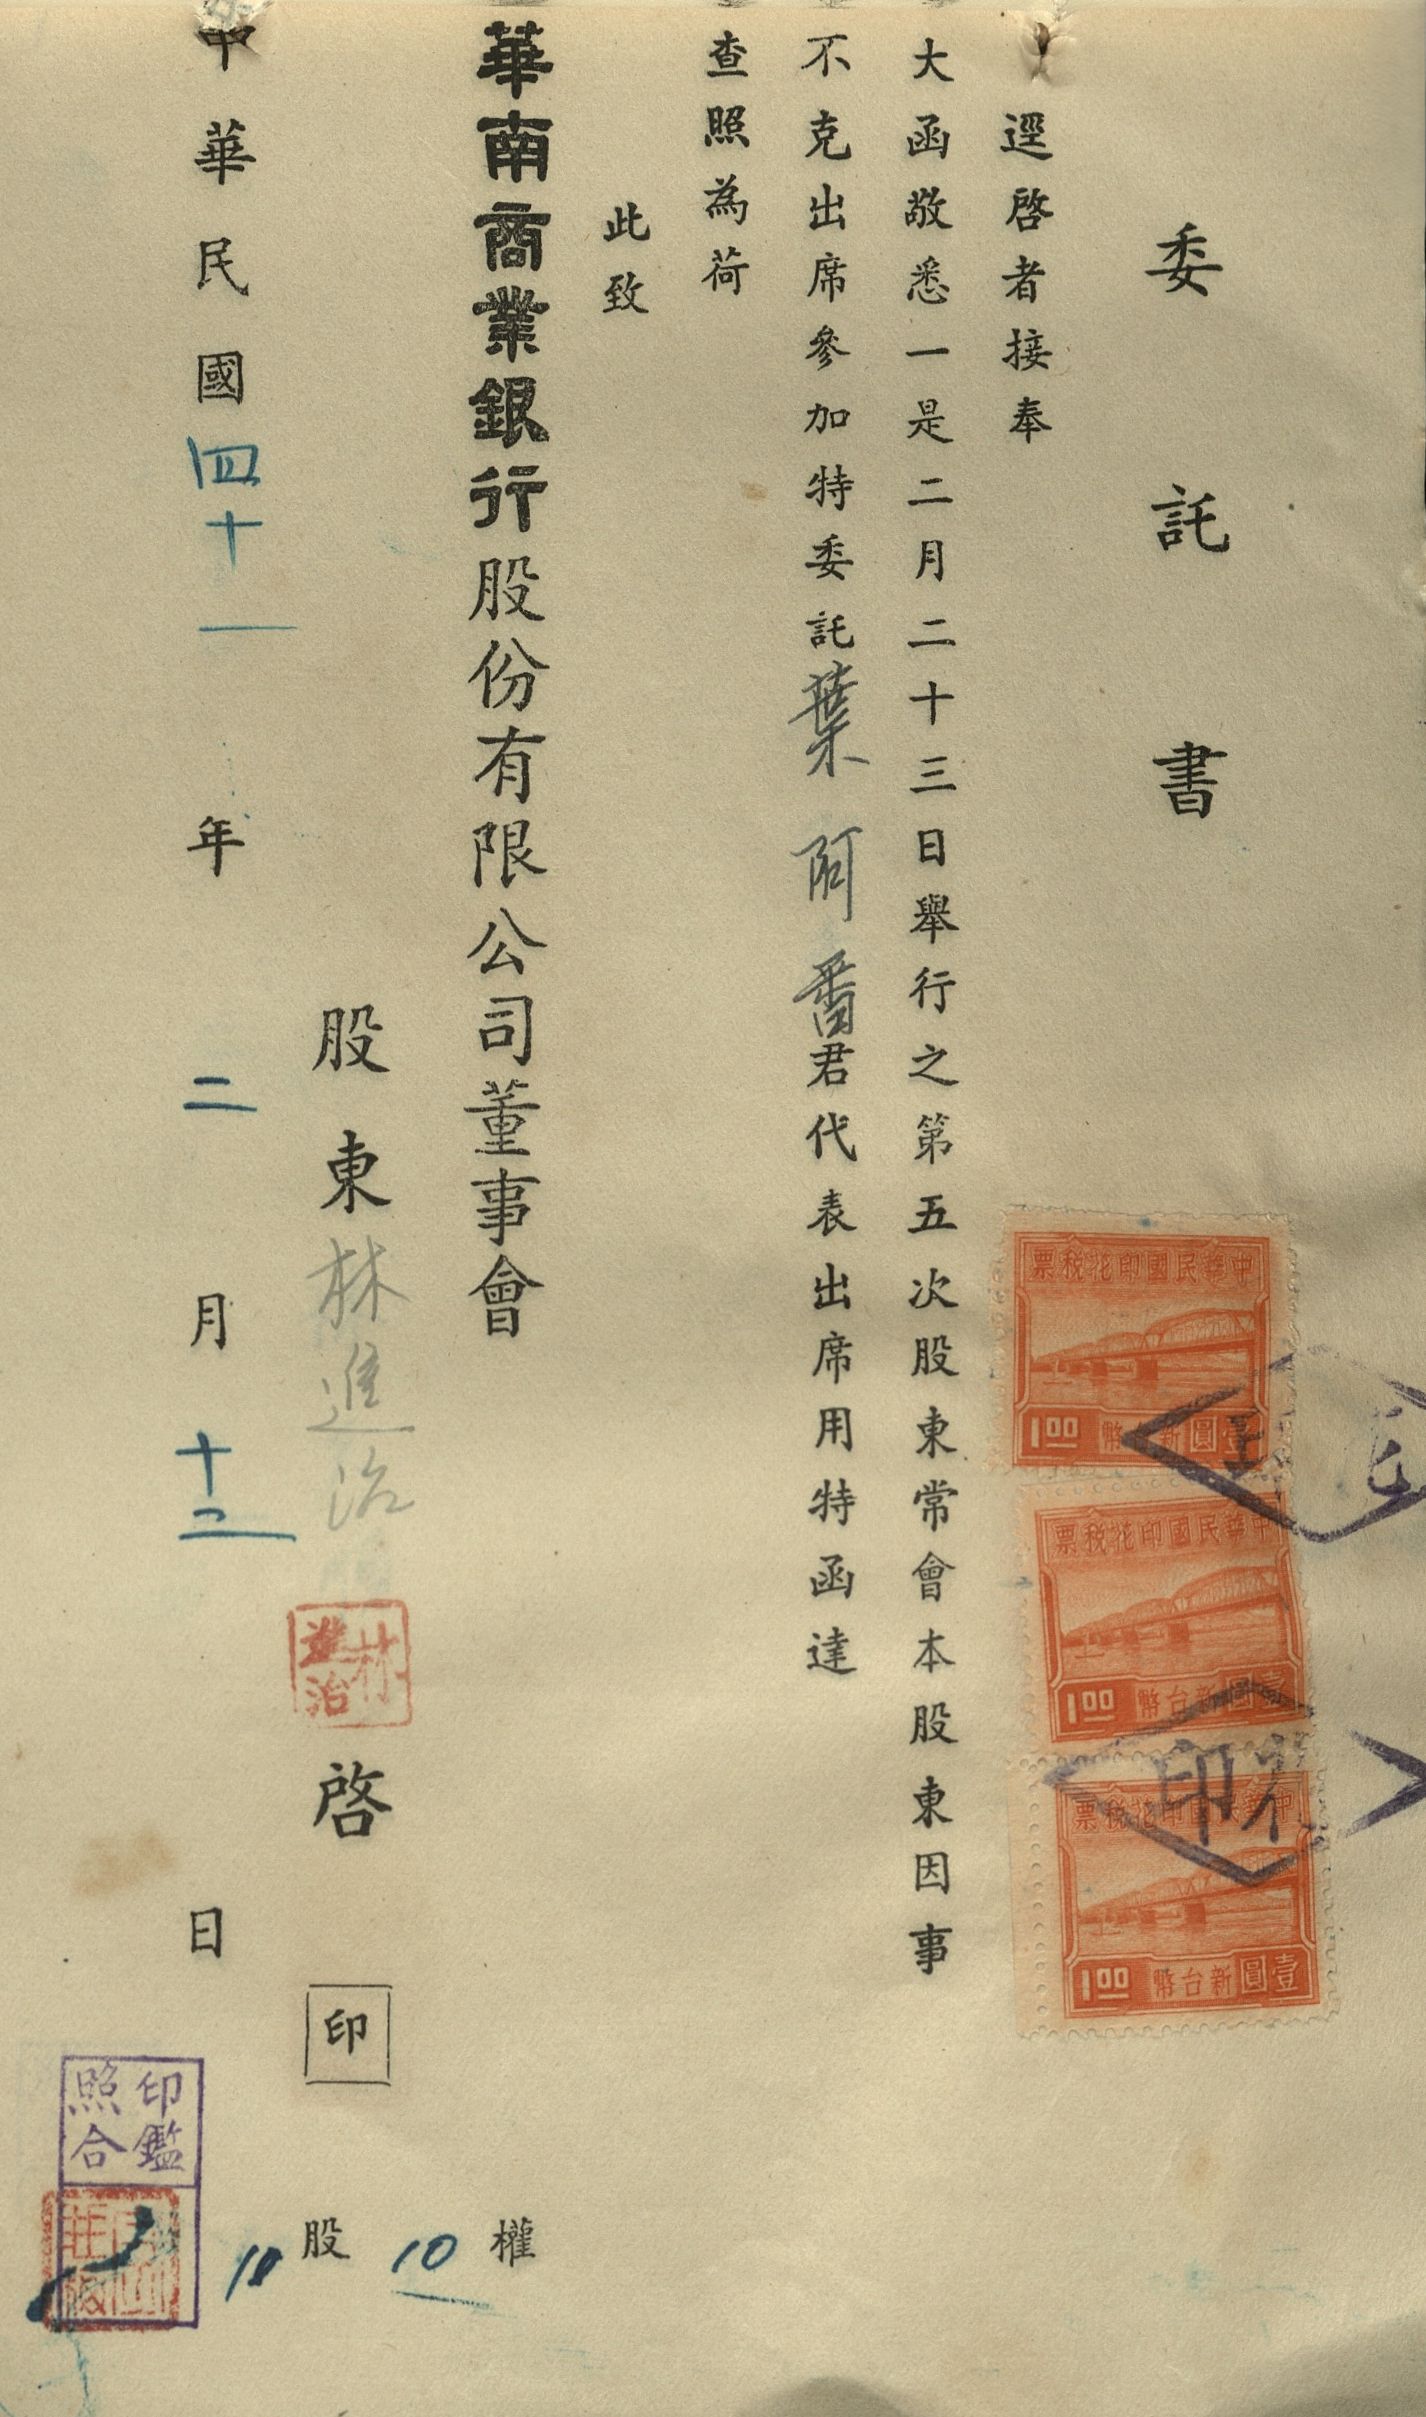 委託書
逕啓者接奉
大函敬悉一是二月二十三日舉行之第五次股東常會本股東因事
不克出席參加特委託葉阿番君代表出席用特函達
查照為荷
此致
華南商業銀行股份有限公司董事會
股東林進治啓印
林進治
10股
10權
中華民國四十一年二月十二日
印鑑照合
中華民國印花稅票
1.00 新台幣壹圓
中華民國印花稅票
1.00 新台幣壹圓
中華民國印花稅票
1.00 新台幣壹圓